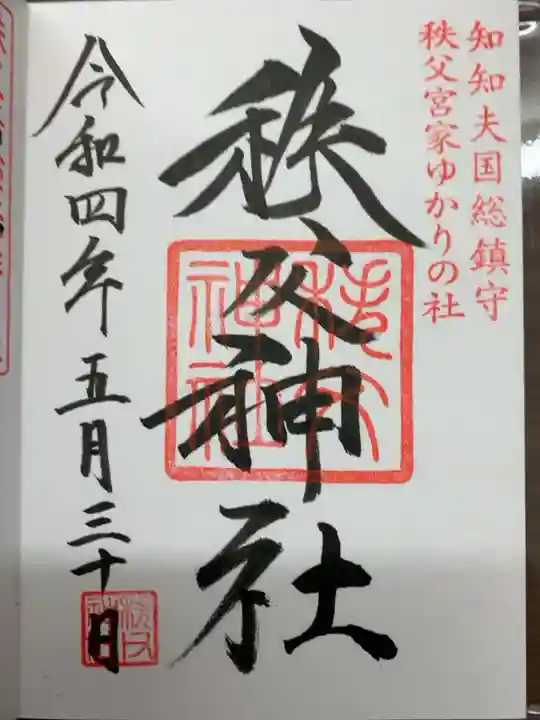 知知夫国総鎮守
秩父宮家ゆかりの社
秩父神社
秩父神社
令和四年五月三十日
秩父神社